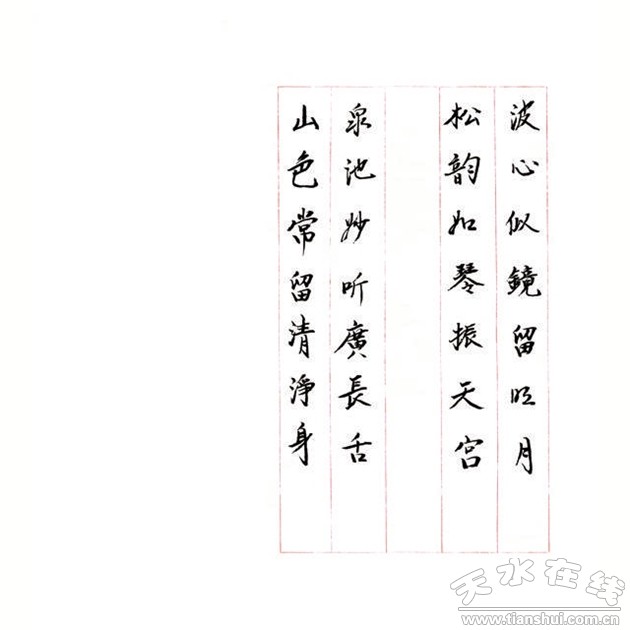 波心似鏡留明月
松韵如琴振天宫
泉池妙听廣長舌
山色常留清淨身
天水在线
www.tianshui.com.cn